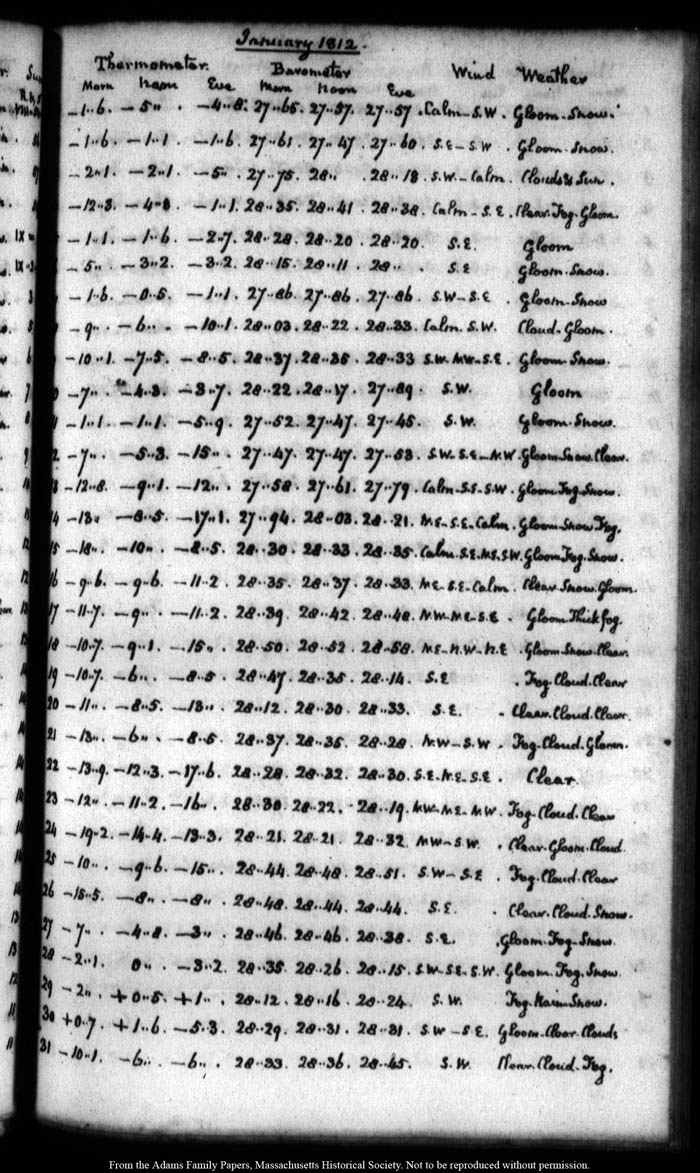 January 1812.
Thermometer. Barometer Wind Weather
Morn Noon Eve Morn Noon Eve
–1..6. –5.. . –4..8. 27..65. 27..57. 27..57. Calm–S.W. Gloom.Snow.
–1..6. –1..1. –1..6. 27..61. 27..47. 27..60. S.E–S.W. Gloom.Snow.
–2..1. –2..1. –5.. 27..75. 28.. . 28..18. S.W.–Calm. Clouds & Sun.
–12..3. –4..8. –1..1. 28..35. 28..41. 28..38. Calm–S.E. Clear.Fog.Gloom.
–1..1. –1..6. –2..7. 28..28. 28..20. 28..20. S.E. Gloom
–5.. . –3..2. –3..2. 28..15. 28..11. 28.. S.E Gloom.Snow.
–1..6. –0..5. –1..1. 27..86. 27..86. 27..86. S.W–S.E. Gloom.Snow
–9.. . –6.. . –10..1. 28..03. 28..22. 28..33. Calm.S.W. Cloud–Gloom.
–10..1. –7..5. –8..5. 28..37. 28..35. 28..33 S.W.NW–S.E. Gloom.Snow.
–7.. . –4..3. –3..7. 28..22. 28..17. 27..89. S.W. Gloom
–1..1. –1..1. –5..9. 27..52. 27..47. 27..45. S.W. Gloom.Snow.
2 –7.. . –5..3. –15.. . 27..47. 27..47. 27..53. S.W–S.E–N.W. Gloom Snow.Clear.
13 –12..8. –9..1. –12.. . 27..58. 27..61. 27..79. Calm–S.E.S.W. Gloom.Fog.Snow.
14 –13.. –8..5. –17..1. 27..94. 28..03. 28..21. N.E–S.E.Calm. Gloom.Snow.Fog.
15 –18.. . –10.. . –8..5. 28..30. 28..33. 28..35. Calm.S.E.N.E.S.W. Gloom.Fog.Snow.
16 –9..6. –9..6. –11..2. 28..35. 28..37. 28..33. N.E–S.E–Calm. Clear.Snow.Gloom.
17 –11..7. –9.. . –11..2. 28..39. 28..42. 28..48. N.W–N.E–S.E. Gloom.Thick fog.
18 –10..7. –9..1. –15.. . 28..50. 28..52. 28..58. N.E–N.W–N.E. Gloom.Snow.Clear.
19 –10..7. –6.. . –8..5. 28..47. 28..35. 28..14. S.E. Fog.Cloud.Clear
20 –11.. . –8..5. –13.. . 28..12. 28..30. 28..33. S.E. Clear.Cloud.Clear.
21 –13.. . –6.. . –8..5. 28..37. 28..35. 28..28. N.W–S.W. Fog–Cloud.Gloom.
22 –13..9. –12..3. –17..6. 28..28. 28..32. 28..30. S.E.N.E.S.E. Clear
23 –12.. . –11..2. –16.. . 28..30. 28..22. 28..19. NW–N.E–N.W. Fog–Cloud.Clear
24 –19..2. –14..4. –13..3. 28..21. 28..21. 28..32. NW–S.W. Clear.Gloom.Cloud.
25 –10.. . –9..6. –15.. . 28..44. 28..48. 28..51. S.W–S.E. Fog.Cloud.Clear
26 –15..5. –8.. . –8.. . 28..48. 28..44. 28..44. S.E. Clear.Cloud.Snow.
27 –7.. . –4..8. –3.. . 28..46. 28..46. 28..38. S.E. Gloom.Fog–Snow.
28 –2..1. 0.. . –3..2. 28..35. 28..26. 28..15. S.W–S.E.S.W. Gloom.Fog.Snow.
29 –2.. . +0..5. +1.. . 28..12. 28..16. 28..24. S.W. Fog.Rain.Snow.
30 +0..7. +1..6. –5..3. 28..29. 28..31. 28..31. S.W–S.E. Gloom.Clear.Clouds
31 –10..1. –6.. . –6.. . 28..33. 28..36. 28..45. S.W. Clear.Cloud.Fog.
From the Adams Family Papers, Massachusetts Historical Society. Not to be reproduced without permission.